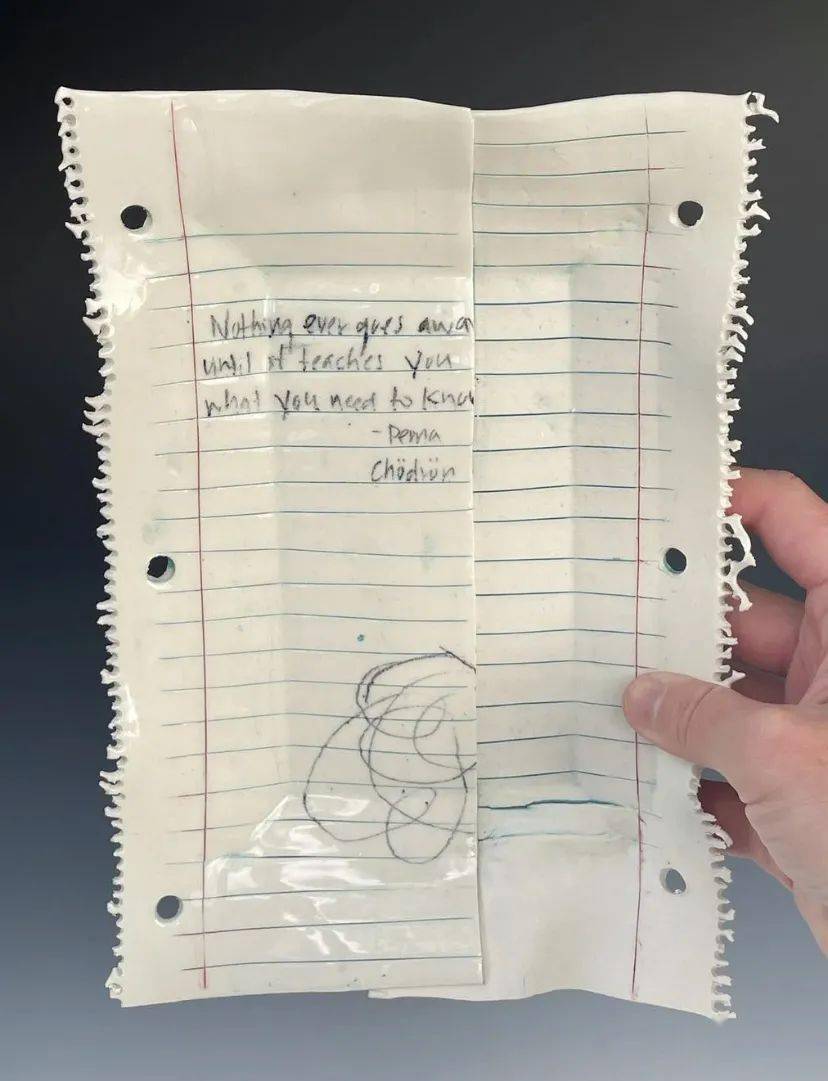 Nothing ever goes awa
until it teaches you
what you need to know
-Pema
Chödrön